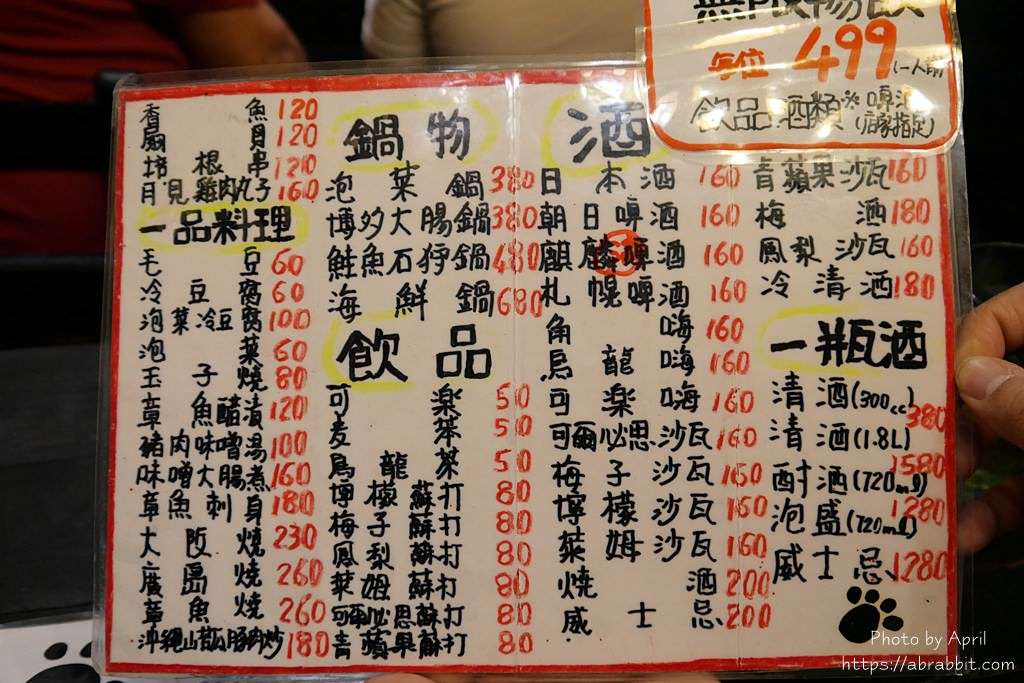 無限暢飲
每位 499 (一人前)
飲品 酒類 ※啤酒(店家指定)
香魚 120
扇貝 120
培根串 120
月見雞肉丸子 160
一品料理
毛豆 60
冷豆腐 60
泡菜冷豆腐 100
泡菜 60
玉子燒 80
章魚醋漬 120
豬肉味噌湯 100
味噌大腸煮 160
章魚刺身 180
大阪燒 230
廣島燒 260
章魚燒 260
沖繩山苦瓜豚肉炒 180
鍋物
泡菜鍋 380
博多大腸鍋 380
鮭魚石狩鍋 480
海鮮鍋 680
飲品
可樂 50
麦茶 50
烏龍茶 50
檸檬蘇打 80
梅子蘇打 80
鳳梨蘇打 80
萊姆蘇打 80
可爾必思蘇打 80
青蘋果蘇打 80
酒
日本酒 160
朝日啤酒 160
麒麟啤酒 160
札幌啤酒 160
角嗨 160
烏龍嗨 160
可樂嗨 160
可爾必思沙瓦 160
梅子沙瓦 160
檸檬沙瓦 160
萊姆沙瓦 160
燒酒 200
威士忌 200
青蘋果沙瓦 160
梅酒 180
鳳梨沙瓦 160
冷清酒 180
一瓶酒
清酒(300cc) 380
清酒(1.8L) 1580
酎酒(720ml) 1280
泡盛(720ml) 1280
威士忌
Photo by April
https://abrabbit.com